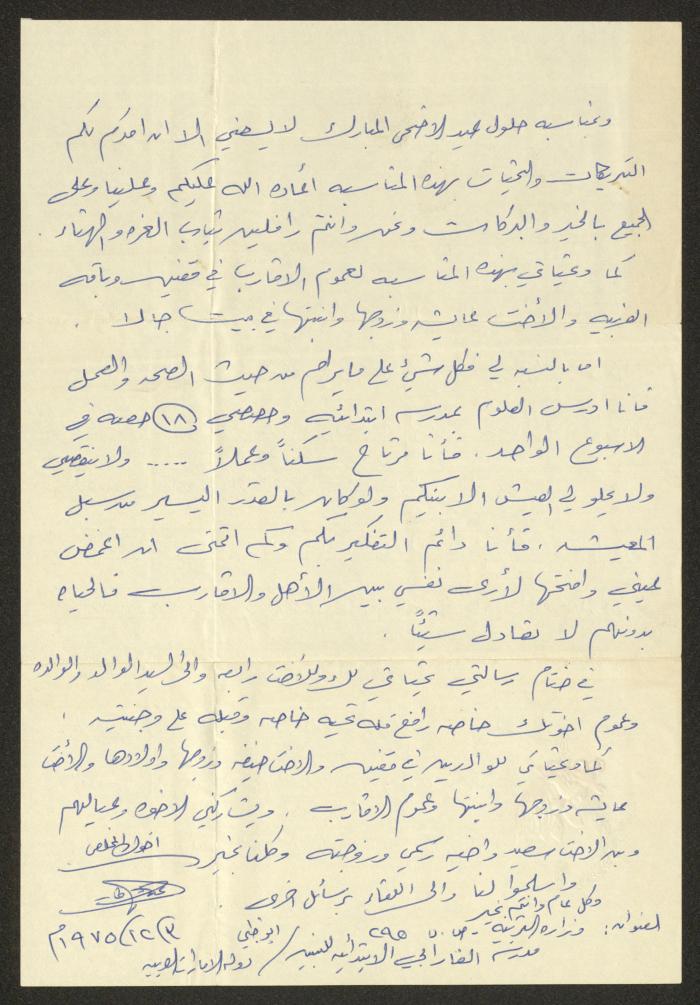 وبمناسبه حلول عيد الاضحى المبارك لا يسعني الا ان اقدم لكم
التبريكات والتحيات بهذه المناسبه اعاده الله عليكم وعلينا وعلى
الجميع بالخير والبركات ونحن وانتم رافلين بثياب العزه والهناء .
كما وتحياتي بهذه المناسبه لعموم الاقارب في وباقه
الغربيه والأخت عايشه وزوجها وابنتها في بيت جالا .
اما بالنسبه لي فكل شيئ على ما يرام من حيث الصحه والعمل
فأنا ادرس العلوم بمدرسه ابتدائيه وحصصي ١٨ حصه في
الاسبوع الواحد . فأنا مرتاح سكناً وعملاً ..... ولا ينقصني
ولا يحلو لي العيش الا بينكم ولو كان بالقدر اليسير من سبل
المعيشه . فأنا دائم التفكير بكم وكم اتمنى ان اغمض
عيني وافتحها لأرى نفسي بين الأهل والاقارب فالحياه
بدونهم لا تعادل شيئاً .
في ختام رسالتي تحياتي لك وللأخت رابعه والى السيد الوالد والوالده
وعموم اخوتك خاصه رافع فله تحيه خاصه وقبله على وجنتيه .
كما وتحياتي للوالدين في والاخت وزوجها واولادها والأخت
عايشه وزوجها وابنتها وعموم الاقارب . ويشاركني الاخوه وعيالهم
وبن الاخت سعيد واخيه رسمي وزوجته وكلنا بخير . اخوك المخلص
واسلموا لنا والى اللقاء برسائل اخرى .
وكل عام وانتم بخير
العنوان : وزارة التربيه – ص . ب ٢٩٥ ابو ظبي ٣/١٢/١٩٧٥م
مدرسة الفارابي الابتدائيه للبنين / دولة الامارات العربيه